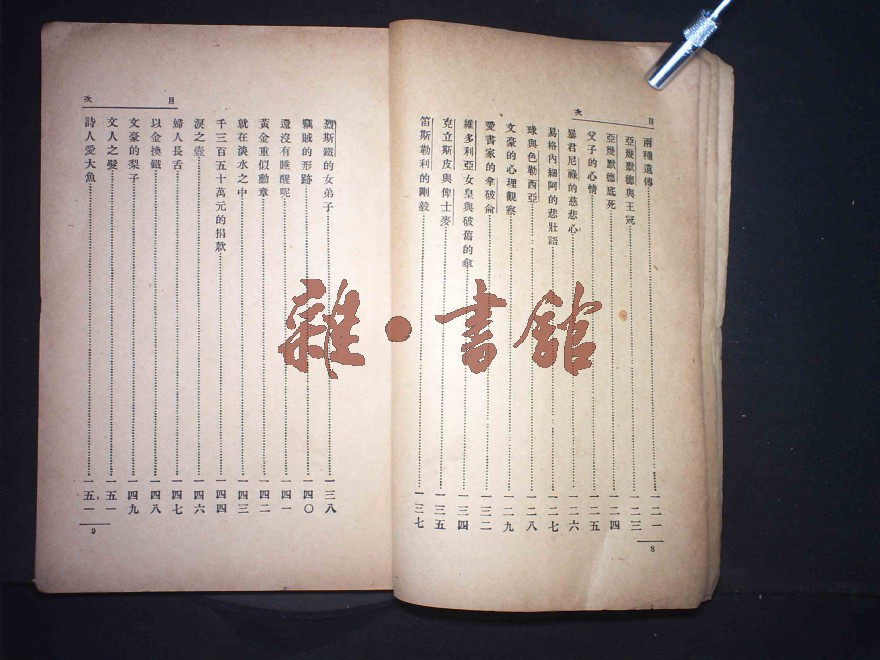 目次
兩種遺傳 一二一
亞幾默德與王冠 一二三
亞幾默德底死 一二四
父子的心情 一二五
暴君尼祿的慈悲心 一二六
易格內細阿的悲壯語 一二七
球與色勒西亞 一二八
文豪的心理觀察 一二九
愛書家的拿破崙 一三二
維多利亞女皇與破舊的傘 一三四
克立斯皮與俾士麥 一三五
笛斯勒利的剛毅 一三七
8
目次
烈斯鐵的女弟子 一三八
竊賊的形跡 一四〇
還沒有睡醒呢 一四一
黃金重似勳章 一四二
就在淡水之中 一四三
千三百五十萬元的捐款 一四四
淚之壺 一四六
婦人長舌 一四七
以金換鐵 一四八
文豪的梨子 一四九
文人之髮 一五一
詩人愛大魚 一五一
9
雜·書館